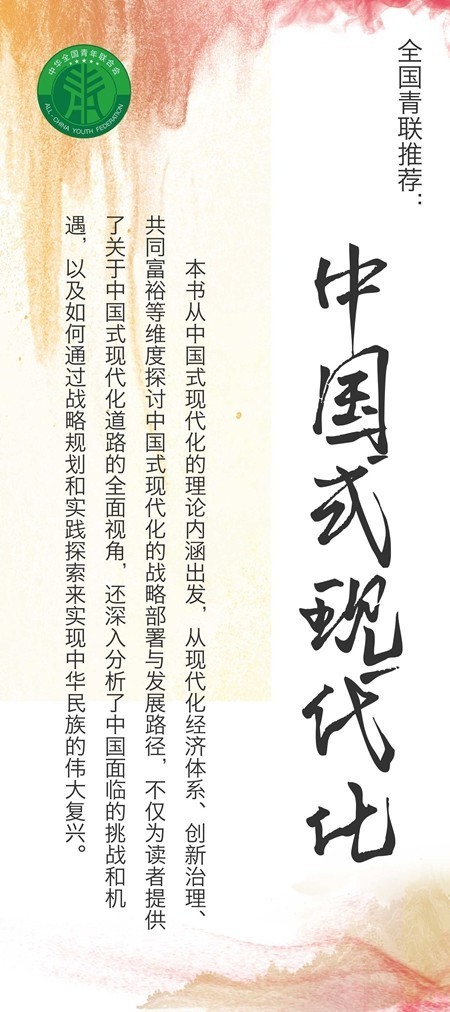 中华全国青年联合会
ALL-CHINA YOUTH FEDERATION
全国青联推荐：
中国式现代化
本书从中国式现代化的理论内涵出发，从现代化经济体系、创新治理、
共同富裕等维度探讨中国式现代化的战略部署与发展路径，不仅为读者提供
了关于中国式现代化道路的全面视角，还深入分析了中国面临的挑战和机
遇，以及如何通过战略规划和实践探索来实现中华民族的伟大复兴。